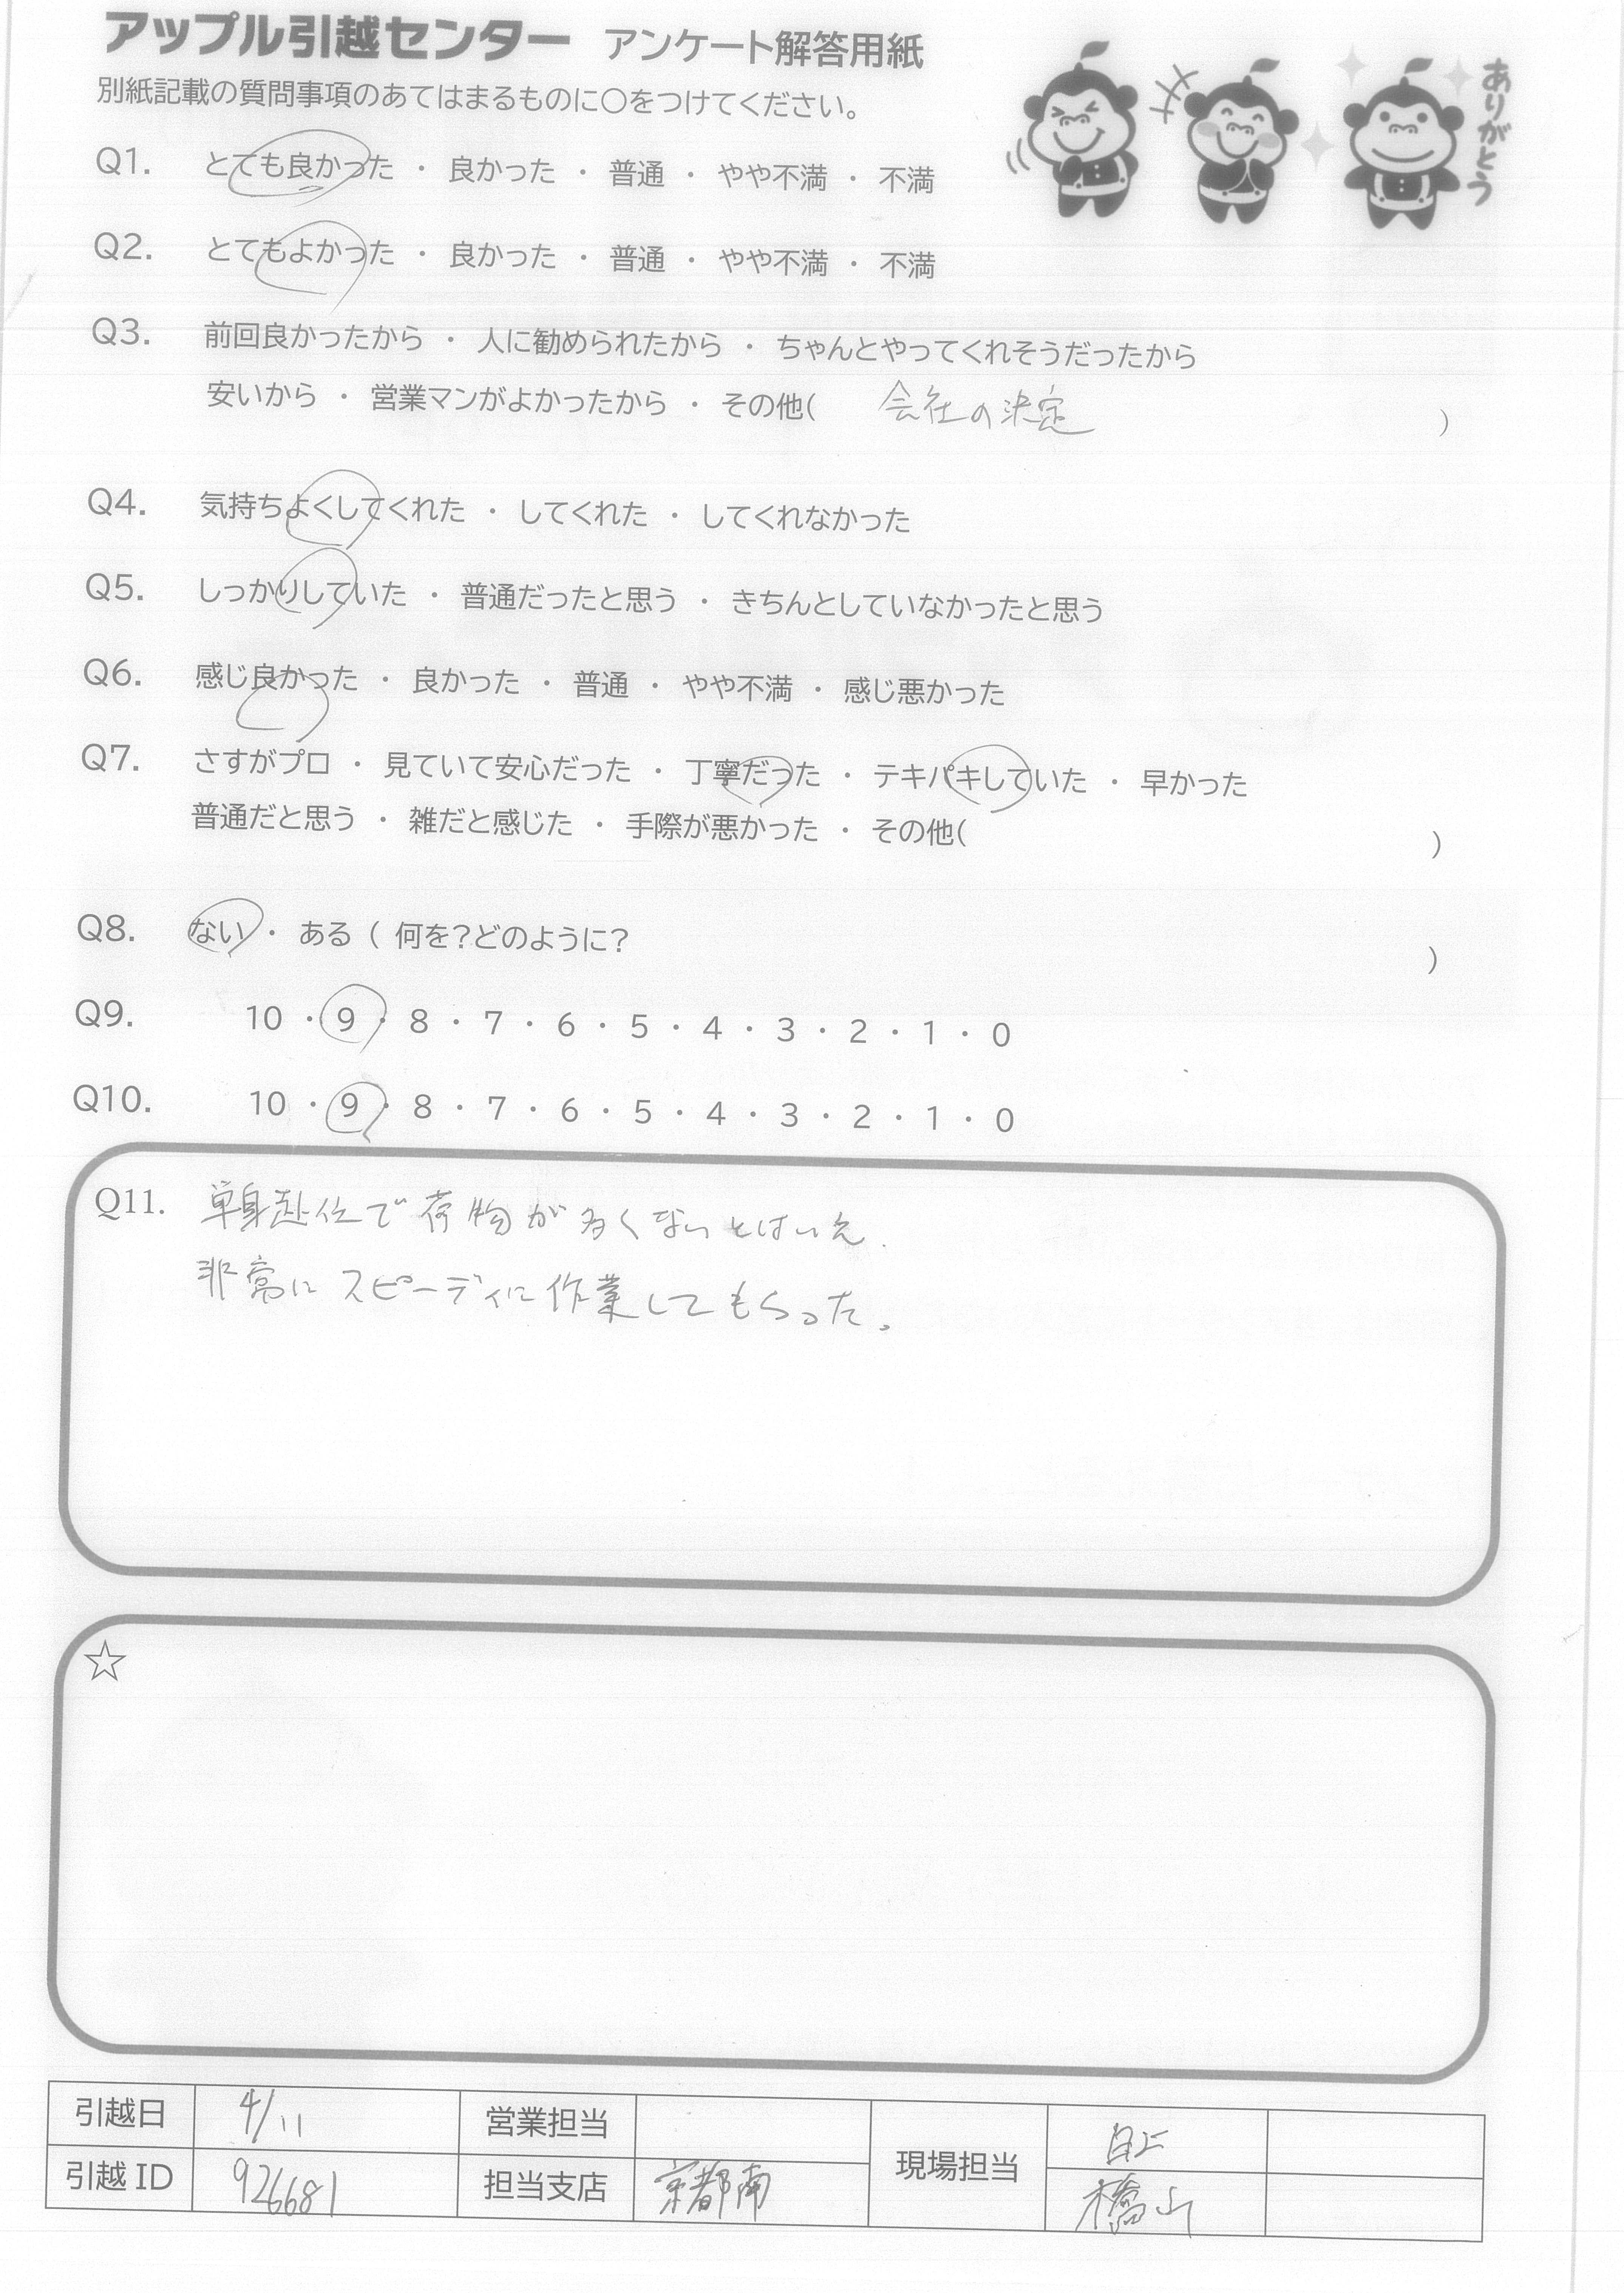 アップル引越センター アンケート解答用紙
ありがとう
別紙記載の質問事項のあてはまるものに○をつけてください。
Q1. とても良かった ・ 良かった ・ 普通 ・ やや不満 ・ 不満
Q2. とてもよかった ・ 良かった ・ 普通 ・ やや不満 ・ 不満
Q3. 前回良かったから ・ 人に勧められたから ・ ちゃんとやってくれそうだったから
安いから ・ 営業マンがよかったから ・ その他( 会社の決定 )
Q4. 気持ちよくしてくれた ・ してくれた ・ してくれなかった
Q5. しっかりしていた ・ 普通だったと思う ・ きちんとしていなかったと思う
Q6. 感じ良かった ・ 良かった ・ 普通 ・ やや不満 ・ 感じ悪かった
Q7. さすがプロ ・ 見ていて安心だった ・ 丁寧だった ・ テキパキしていた ・ 早かった
普通だと思う ・ 雑だと感じた ・ 手際が悪かった ・ その他( )
Q8. ない ・ ある ( 何を?どのように? )
Q9. 10 ・ 9 ・ 8 ・ 7 ・ 6 ・ 5 ・ 4 ・ 3 ・ 2 ・ 1 ・ 0
Q10. 10 ・ 9 ・ 8 ・ 7 ・ 6 ・ 5 ・ 4 ・ 3 ・ 2 ・ 1 ・ 0
Q11. 単身赴任で荷物が多くないとはいえ、
非常にスピーディに作業してもらった。
☆
引越日 4/11 営業担当 現場担当
引越ID 926681 担当支店 京都南 橋山